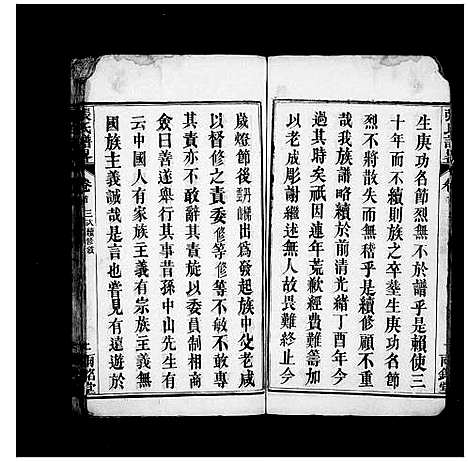 生庚功名節烈無不於譜乎是賴使三
十年而不續則族之卒塟生庚功名節
烈不將散失而無稽乎是續修顧不重
哉我族譜略續於前清光緒丁酉年今
過其時矣祇因連年荒歉經費難籌加
以老成彫謝繼述無人故畏難終止今
歲燈節後
出為發起族中父老咸
以督修之責委修等修等不敏不敢專
其責亦不敢辭其責旋以委員制相商
僉曰善遂舉行其事昔孫中山先生有
云中國人有家族主義有宗族主義無
國族主義誠哉是言也嘗見有遊於
張氏譜畧
卷首
三次續修敘